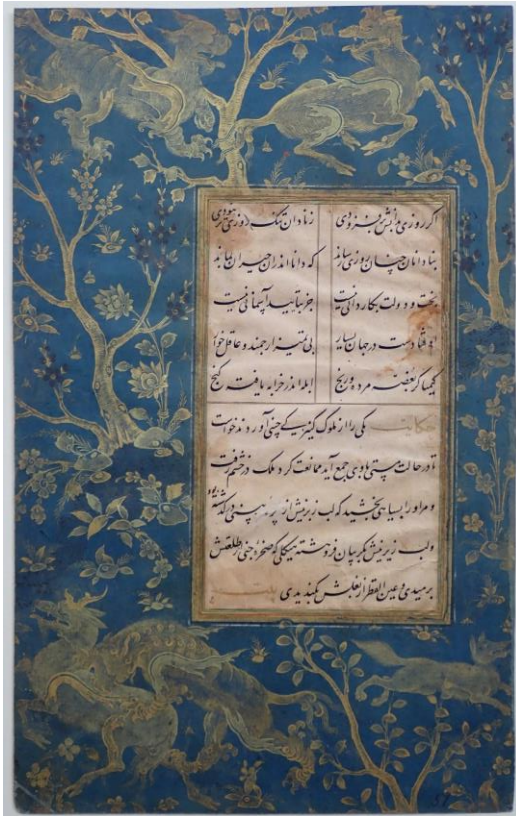 اگر روزی بدانش بر فزودی ز نادان تنک روزی تر نبودی
بنادانان چنان روزی رساند که دانا اندران حیران بماند
بخت و دولت بکاردانی نیست جز بتایید آسمانی نیست
اوفتادست در جهان بسیار بی تمیز ارجمند و عاقل خوار
کیمیاگر بغصه مرده و رنج ابله اندر خرابه یافته کنج
حکایت یکی را از ملوک کنیزکی چینی آوردند خواست
تا در حالت مستی با وی جمع آید ممانعت کرد ملک در خشم رفت
و مر او را بسیاهی بخشید که لب زبرینش از پره بینی در کذشته بود
و لب زیرینش بکریبان فروهشته هیکلی که صخره جنی از طلعتش
برمیدی و عین القطر از بغلش بکندیدی بیت